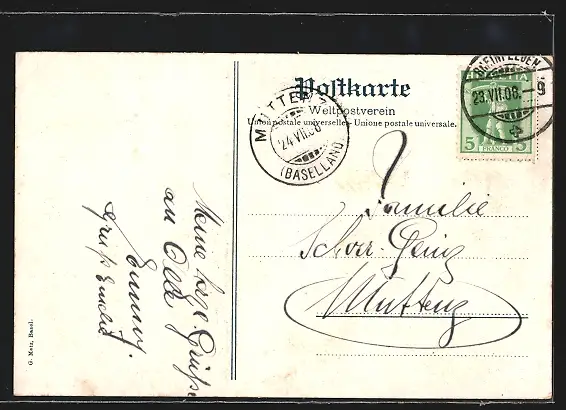 Postkarte
Weltpostverein
Union postale universelle. - Unione postale universale.
MUTTENZ
24.VII.08
(BASELLAND)
RHEINFELDEN
23.VII.08. - 9
HELVETIA
5 FRANCO 5
Familie
Schorr
Muttenz
Meine Grüsse
an
Emmy.
Gruss Emelie
G. Metz, Basel.